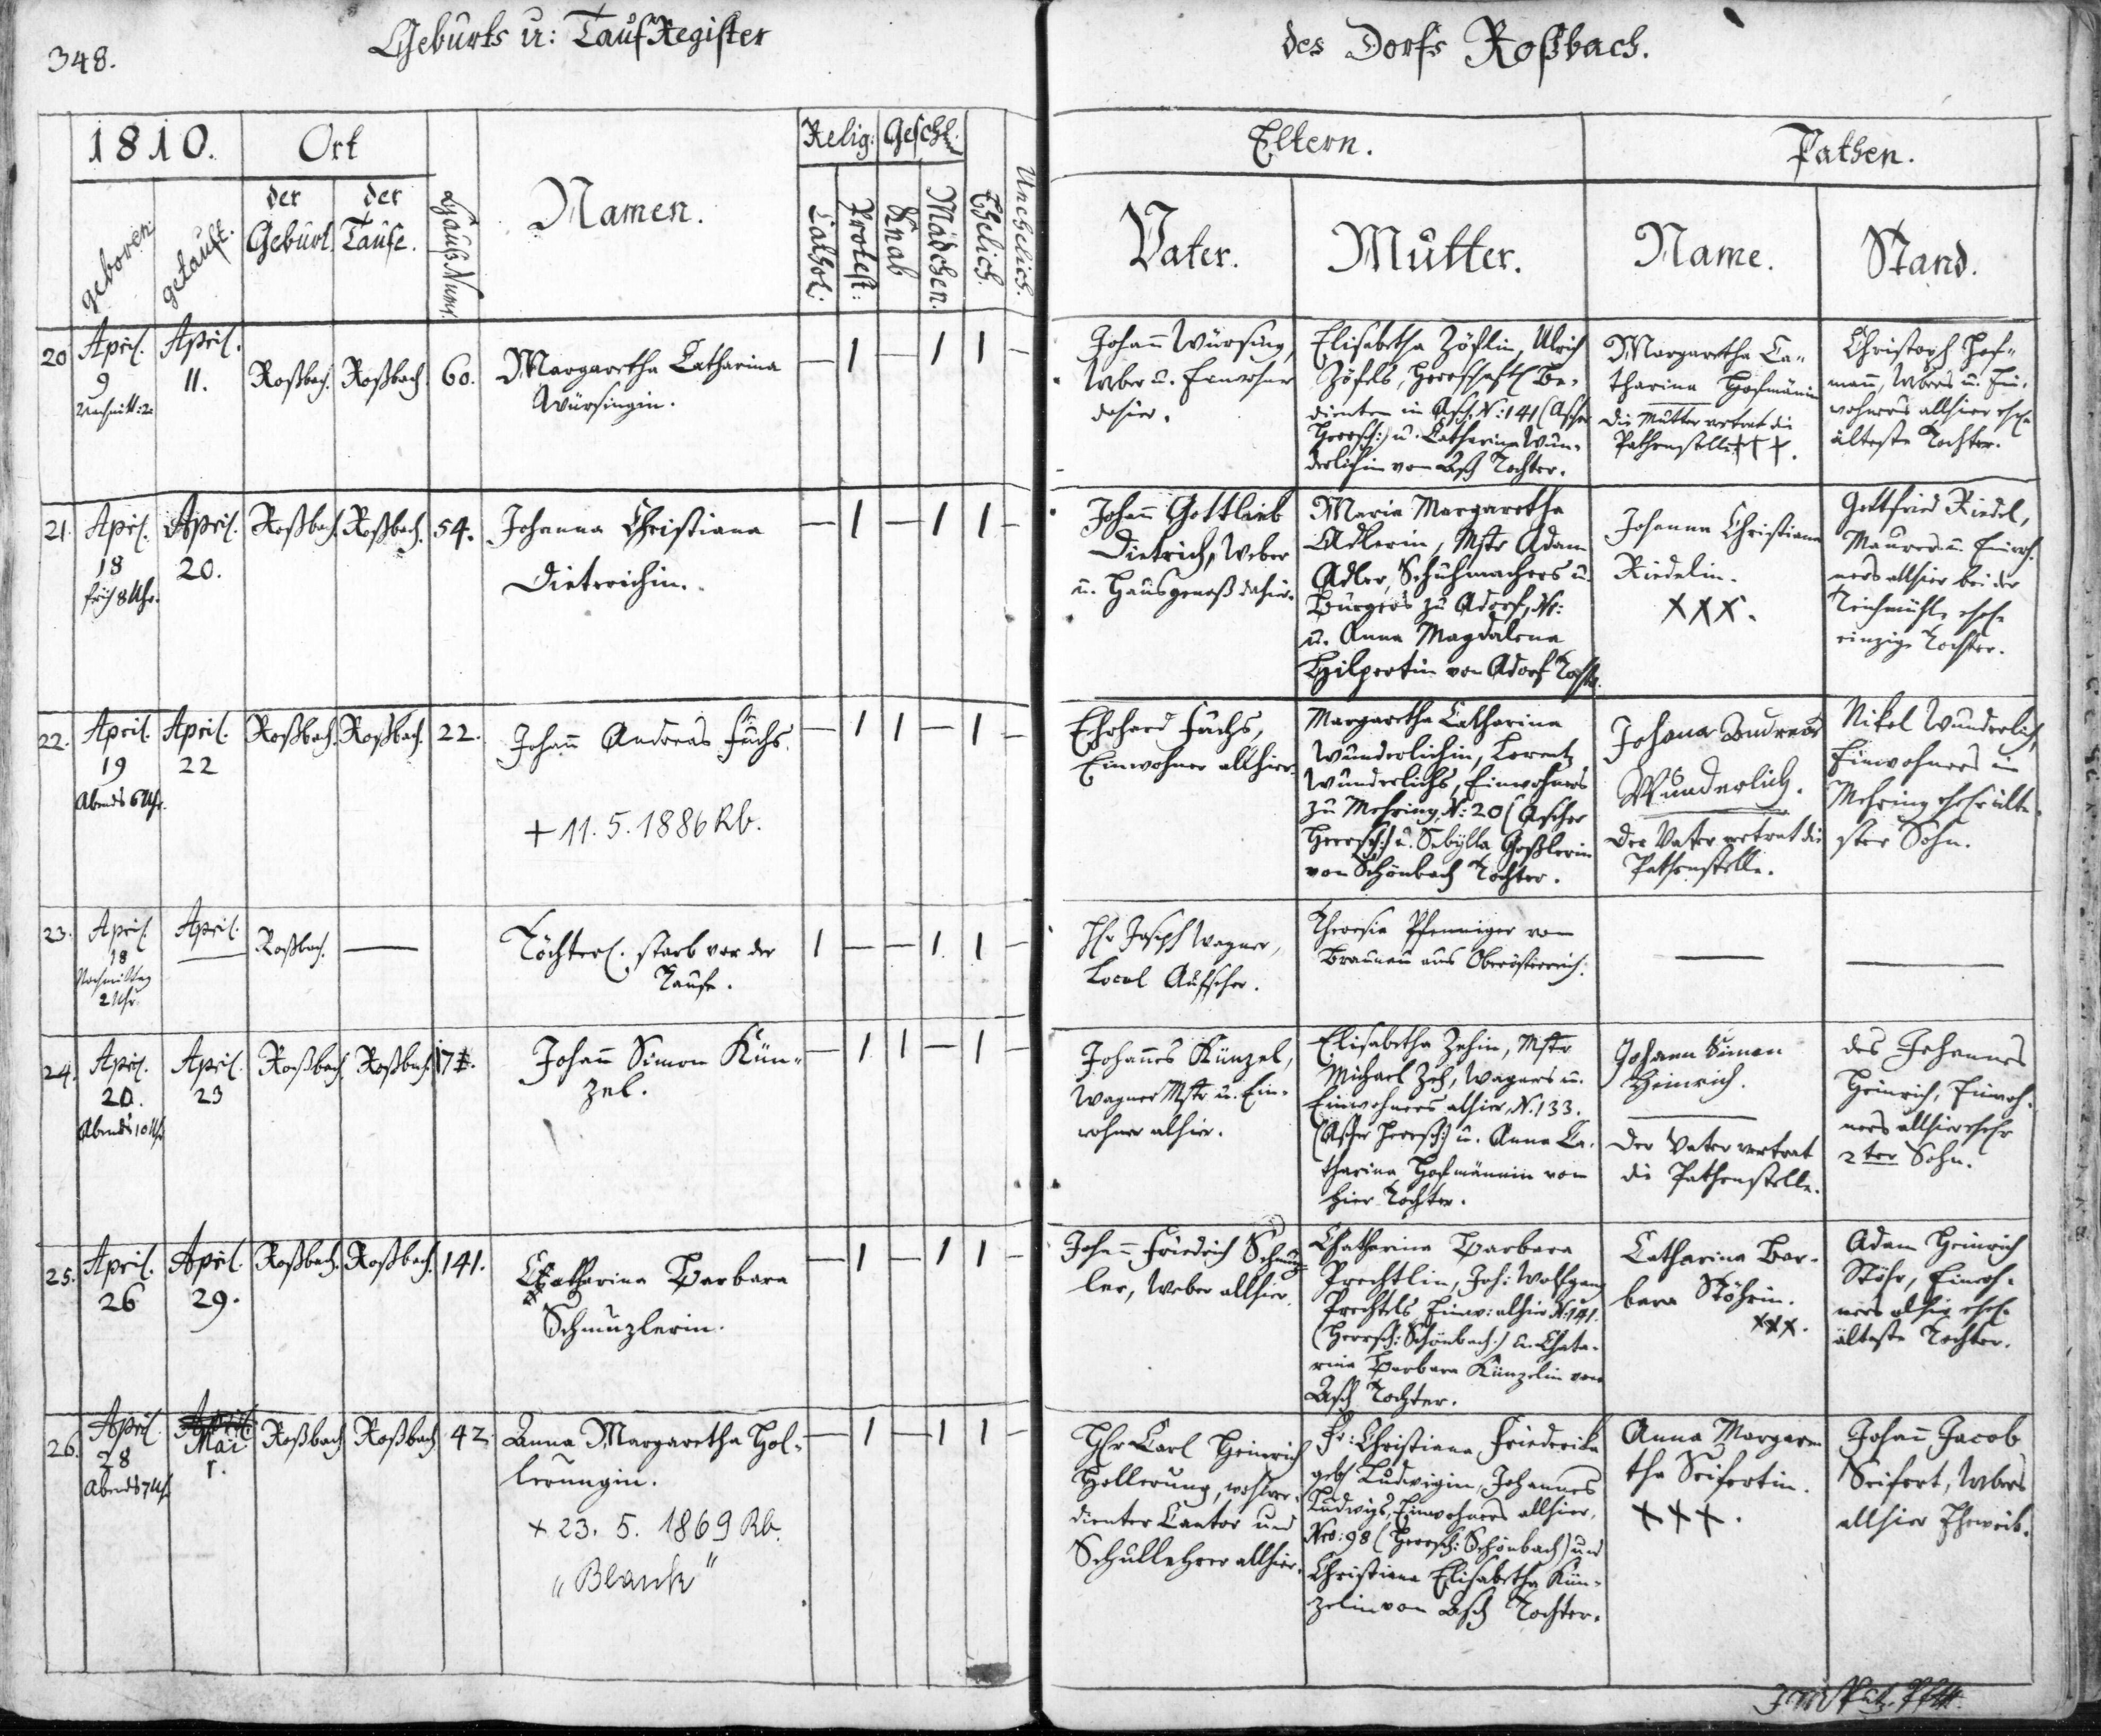 348.
Geburts u: Tauf Register
des Dorfs Roßbach.
1810.
Ort
Relig:
Geschl.
Eltern.
Pathen.
geboren
getauft.
der Geburt.
der Taufe.
Hauß Num.
Namen.
Cathol:
Protest:
Knab
Mädchen.
Ehelich.
Unehelich.
Vater.
Mutter.
Name.
Stand.
20
April. 9
Nachmitt: 2.
April. 11.
Roßbach.
Roßbach
60.
Margaretha Catharina
Würsingin.
— 1 — 1 1 —
Johann Würsing,
Weber u. Einwohner
dahier.
Elisabetha Zöflin, Ulrich
Zöfels, Herrschaftl. Be-
dienten in Asch N: 141 (Ascher
Herrsch:) u. Catharina Wun-
derlichin von Asch Tochter.
Margaretha Ca-
tharina Hofmänin
Die Mutter vertrat die
Pathenstelle +++.
Christoph Hof-
mann, Webers u. Ein-
wohners allhier ehel.
älteste Tochter.
21.
April. 18
früh 8 Uhr.
April. 20.
Roßbach.
Roßbach.
54.
Johanna Christiana
Dietrichin.
— 1 — 1 1 —
Johann Gottlieb
Dietrich, Weber
u. Hausgenoß dahier.
Maria Margaretha
Adlerin, Mstr Adam
Adler, Schuhmachers u.
Bürgers zu Adorf, N:
u. Anna Magdalena
Hilpertin von Adorf Tocht.
Johanna Christiana
Riedelin.
XXX.
Gottfried Riedel,
Maurers u. Einwoh-
ners allhier bei der
Teichmühle ehel.
einzige Tochter.
22.
April. 19
Abends 6 Uhr.
April. 22
Roßbach.
Roßbach.
22.
Johann Andreas Fuchs.
+ 11. 5. 1886 Rb.
— 1 1 — 1 —
Ehrhard Fuchs,
Einwohner allhier.
Margaretha Catharina
Wunderlichin, Lorentz
Wunderlichs, Einwohners
zu Mehring, N: 20 (Ascher
Herrsch:) u. Sebylla Goßlerin
von Schönbach Tochter.
Johann Andreas
Wunderlich.
Der Vater vertrat die
Pathenstelle.
Nikel Wunderlich,
Einwohners in
Mehring ehel. älte-
ster Sohn.
23.
April. 18
Nachmittag
2 Uhr.
April. —
Roßbach.
—
Töchterl. starb vor der
Taufe.
1 — — 1. 1 —
Hr. Joseph Wagner,
Local Aufseher.
Theresia Pfenniger von
Braunau aus Oberöstreich.
—
—
24.
April. 20.
Abends 10 Uhr
April. 23
Roßbach.
Roßbach.
Johann Simon Kün-
zel.
— 1 1 — 1 —
Johannes Künzel,
Wagner Mstr u. Ein-
wohner alhier.
Elisabetha Zehin, Mstr
Michael Zeh, Wagners u.
Einwohners alhier, N. 133.
(Ascher Herrsch:) u. Anna Ca-
tharina Hofmännin von
hier Tochter.
Johann Simon
Heinrich.
Der Vater vertrat
die Pathenstelle.
des Johannes
Heinrich, Einwoh-
ners allhier ehel.
2ter Sohn.
25.
April. 26
April. 29.
Roßbach.
Roßbach.
141.
Catharina Barbara
Schmuzlerin.
— 1 — 1 1 —
Johann Friedrich Schmuz-
ler, Weber allhier.
Chatharina Barbara
Prechtlin, Joh: Wolfgang
Prechtels Einw: alhier N: 141.
(Herrsch: Schönbach:) u. Chata-
rina Barbara Künzelin von
Asch Tochter.
Catharina Bar-
bara Stöhrin.
XXX.
Adam Heinrich
Stöhr, Einwoh-
ners alhier ehel.
älteste Tochter.
26.
April. 28
Abends 7 Uhr.
April
Mai 1.
Roßbach
Roßbach
42.
Anna Margaretha Hol-
lerungin.
+ 23. 5. 1869 Rb.
"Blank"
— 1 — 1 1 —
Hr Carl Heinrich
Hollerung, wohlver-
dienter Cantor und
Schullehrer allhier.
Fr: Christiana Friederika
geb. Ludwigin, Johannes
Ludwigs, Einwohners allhier,
Nro: 98 (Herrsch: Schönbach) und
Christiana Elisabetha Kün-
zelin von Asch Tochter.
Anna Margare
tha Seifertin.
+++.
Johann Jacob
Seifert, Webers
allhier Eheweib.